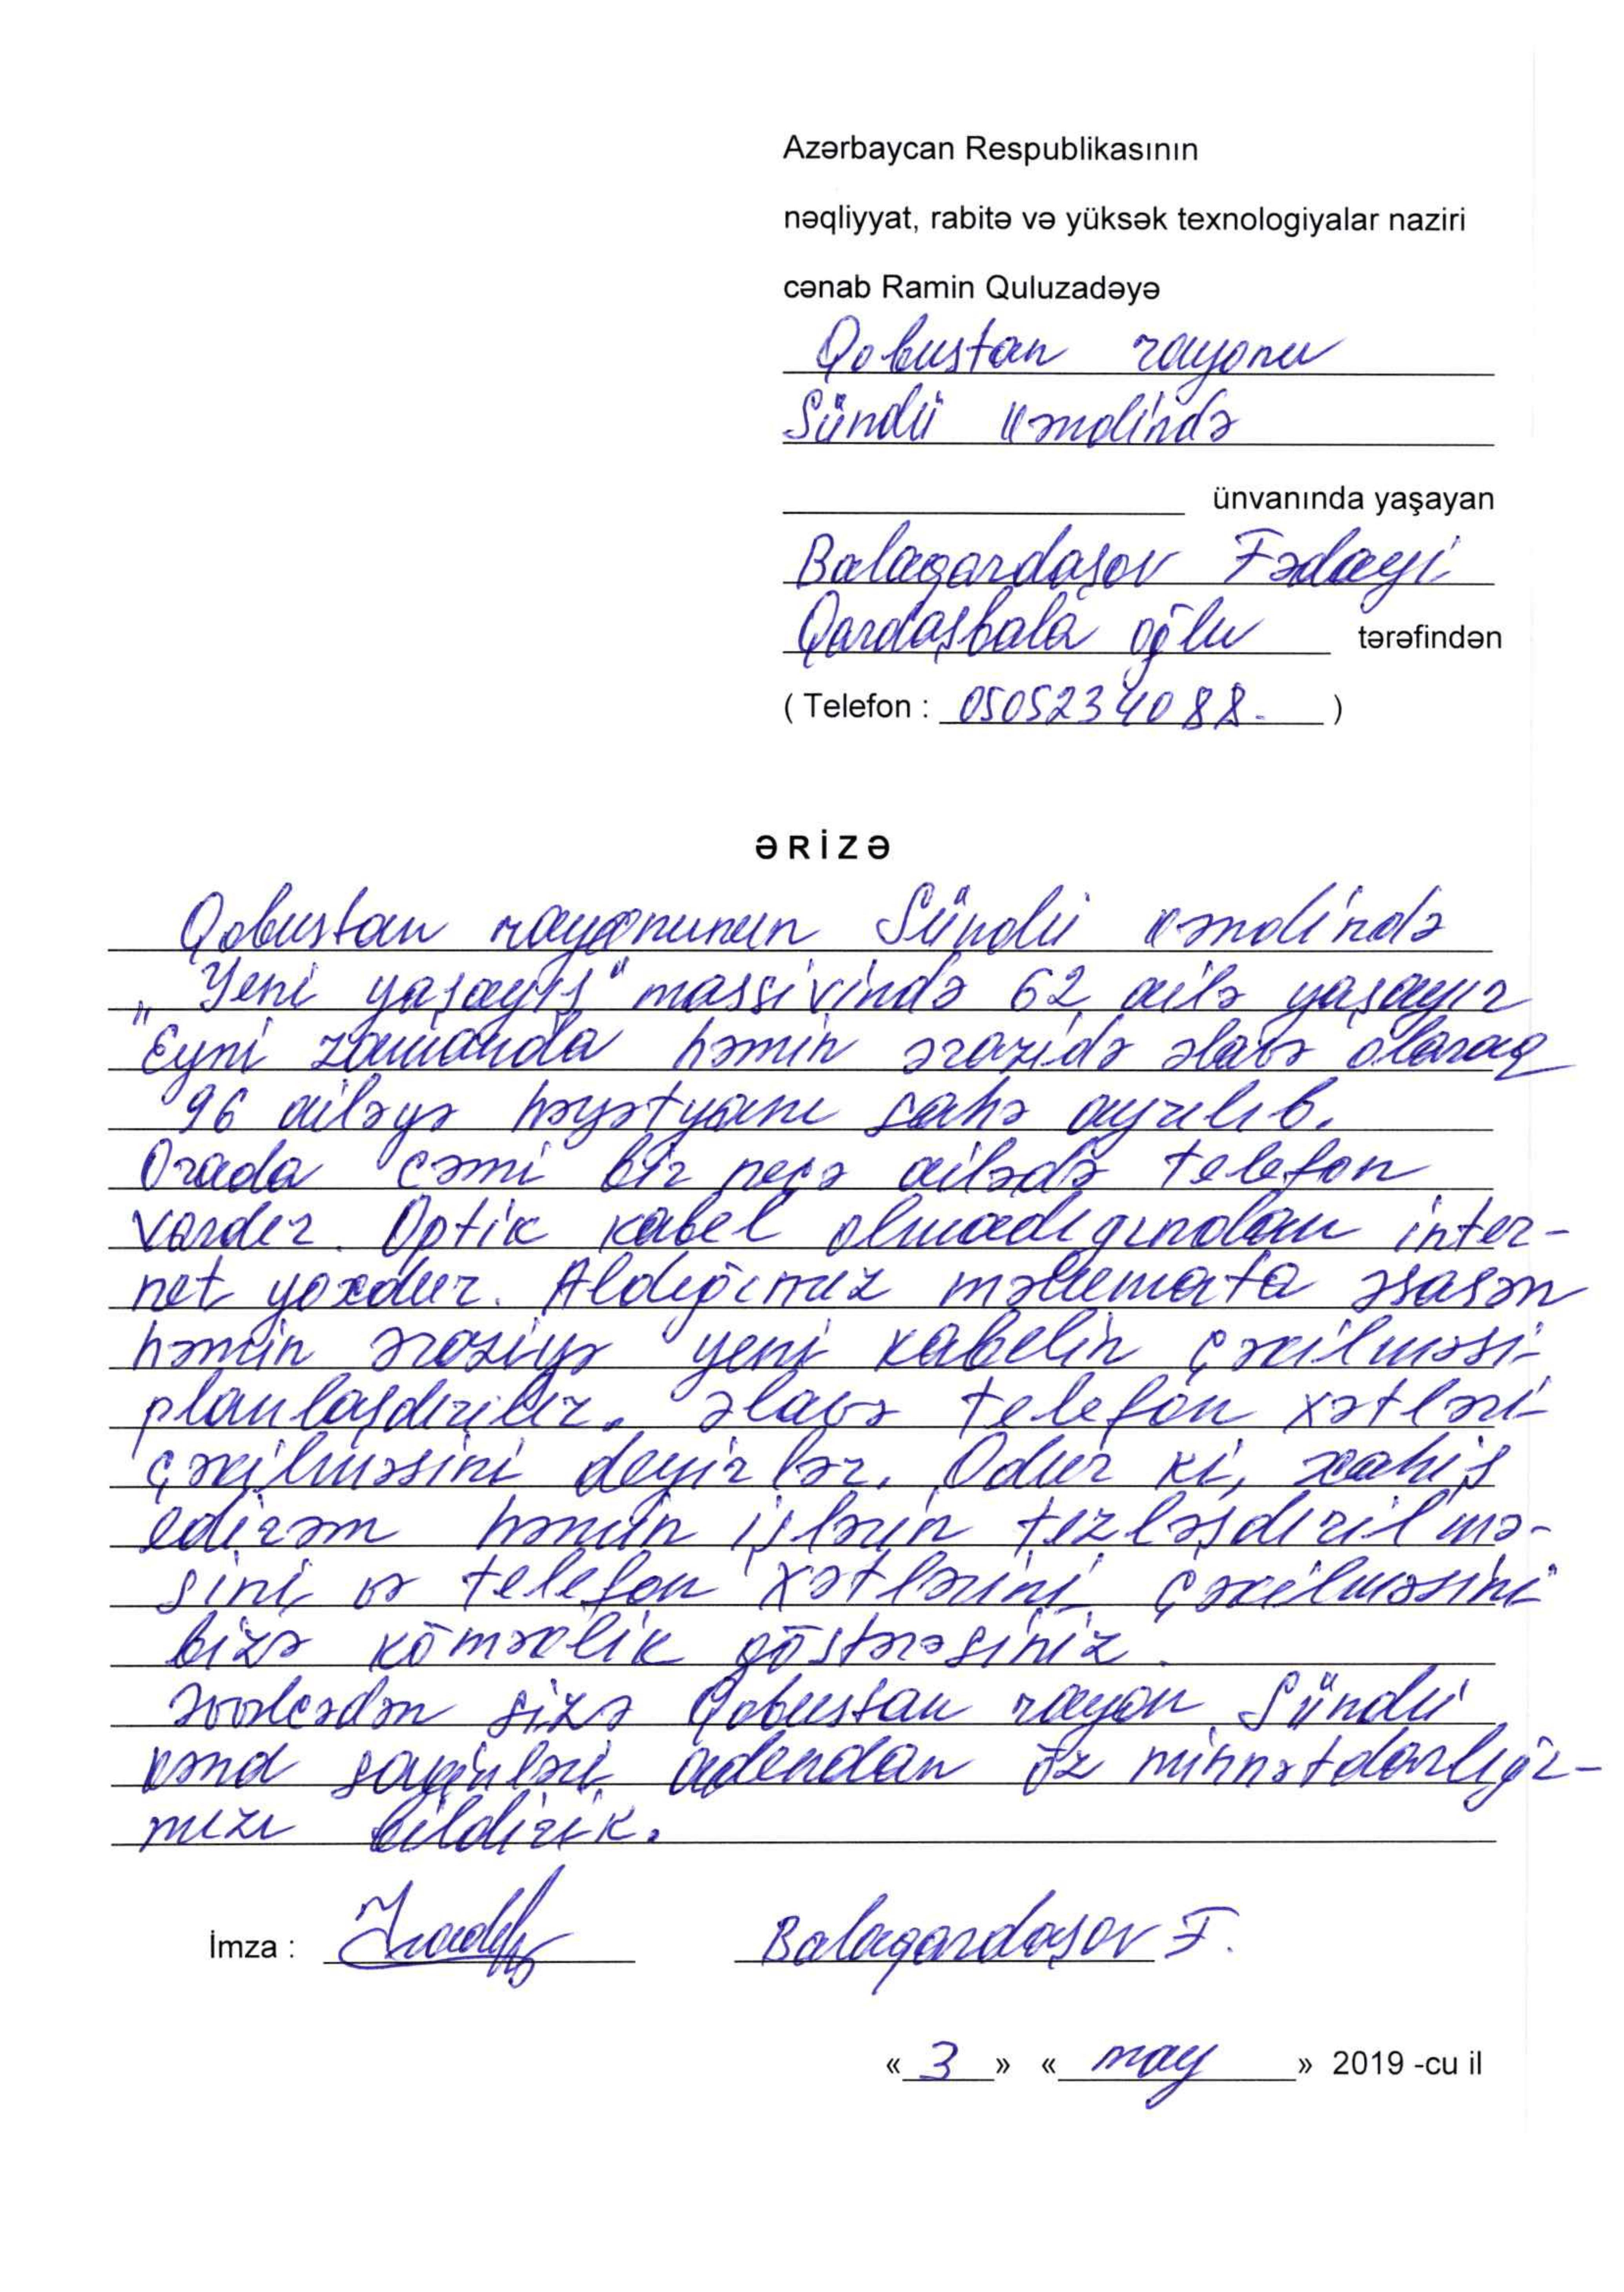 Azərbaycan Respublikasının
nəqliyyat, rabitə və yüksək texnologiyalar naziri
cənab Ramin Quluzadəyə
Qobustan rayonu
Sündü kəndində
ünvanında yaşayan
Balaqardaşov Fədayi
Qardaşbala oğlu tərəfindən
( Telefon : 0505234088. )
ƏRİZƏ
Qobustan rayonunun Sündü kəndində
"Yeni yaşayış" massivində 62 ailə yaşayır
Eyni zamanda həmin ərazidə əlavə olaraq
96 ailəyə həyətyanı sahə ayrılıb.
Orada cəmi bir neçə ailədə telefon
vardır. Optik kabel olmadıgından inter-
net yoxdur. Aldığımız məlumata əsasən
həmin əraziyə yeni kabelin çəkilməsi
planlaşdırılır. Əlavə telefon xətləri
çəkilməsini deyirlər. Odur ki, xahiş
edirəm həmin işlərin tezləşdirilmə-
sini və telefon xətlərini çəkilməsini
bizə köməklik göstərəsiniz.
sizə Qobustan rayon Sündü
kənd adından öz minnətdarlığı-
mızı bildirik.
İmza : Balaqardaşov F.
« 3 » « may » 2019 -cu il